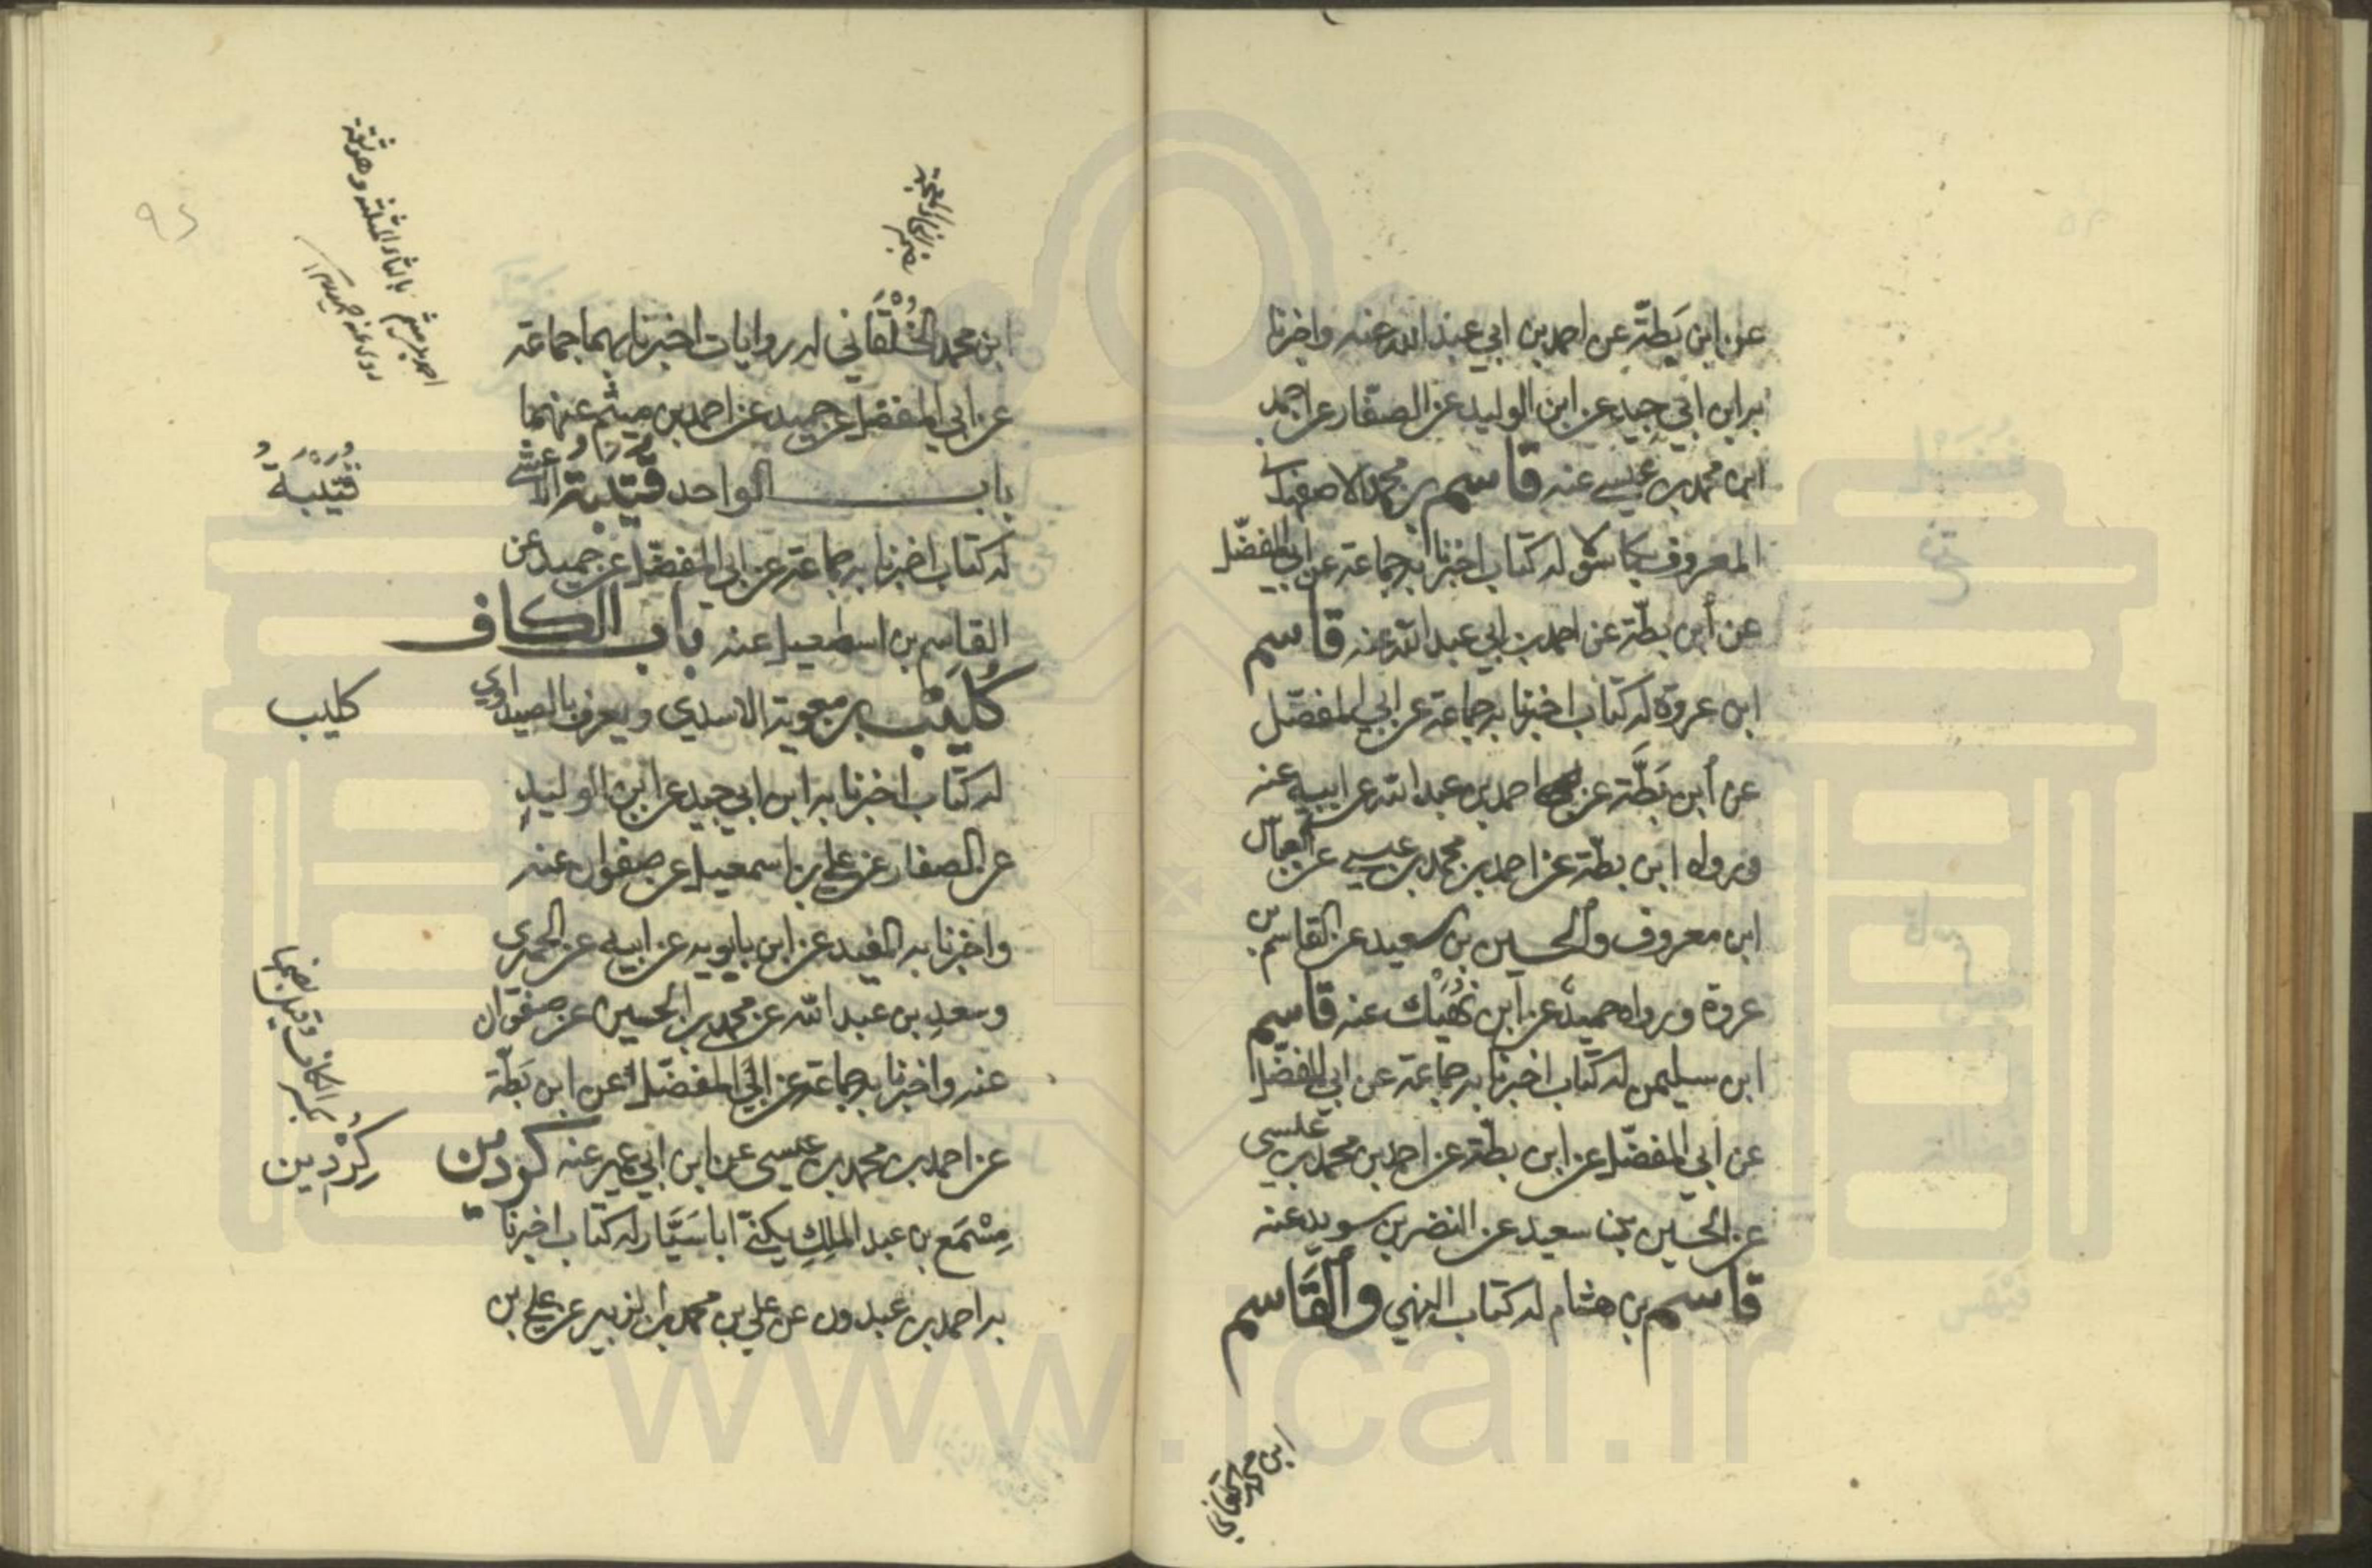 عن ابن بَطّة عن احمد بن ابي عبد الله عنه واخبرنا
به ابن ابي جيد عن ابن الوليد عن الصفّار عن احمد
ابن محمد بن عيسى عنه قاسم بن محمد الاصفهاني
المعروف بكاسولا له كتاب اخبرنا به جماعة عن ابي المفضّل
عن ابن بطّة عن احمد بن ابي عبد الله عنه قاسم
ابن عروة له كتاب اخبرنا به جماعة عن ابي المفضّل
عن ابن بَطَّة عن احمد بن عبد الله عن ابيه عنه
ورواه ابن بطّة عن احمد بن محمد بن عيسى عن العباس
ابن معروف والحسين بن سعيد عن القاسم بن
عروة ورواه حميد عن ابن نُهَيْك عنه قاسم
ابن سليمن له كتاب اخبرنا به جماعة عن ابي المفضّل
عن ابي المفضّل عن ابن بطّة عن احمد بن محمد بن عيسى
عن الحسين بن سعيد عن النضر بن سويد عنه
قاسم بن هشام له كتاب النهي والقَاسم
ابن محمد
ابن محمد الخُلْقَاني له روايات اخبرنا بهما جماعة
عن ابي المفضل عن حميد عن احمد بن ميثم عنهما
باب الواحد قُتَيْبَة الاعشى
له كتاب اخبرنا به جماعة عن ابي المفضّل عن حميد عن
القاسم بن اسمعيل عنه باب الكاف
كُلَيْب بن معوية الاسدي ويعرف بالصيداوي
له كتاب اخبرنا به ابن ابي جيد عن ابن الوليد
عن الصفار عن علي بن اسمعيل عن صفوان عنه
واخبرنا به المفيد عن ابن بابويه عن ابيه عن الحميري
وسعد بن عبد الله عن محمد بن الحسين عن صفوان
عنه واخبرنا به جماعة عن ابي المفضّل عن ابن بَطّة
عن احمد بن محمد بن عيسى عن ابن ابي عمير عنه كردين
مِسْمَع بن عبد الملك يكنّى ابا سَيَّار له كتاب اخبرنا
به احمد بن عبدون عن علي بن محمد بن الزبير عن علي بن
احمد بن ميثم بالثاء المثلثة وهو ثقة
روى عنه حميد
قُتَيْبَةُ
كليب
بكسر الكاف وقيل بضمها
كُرْدِين
٩٤
www.ical.ir